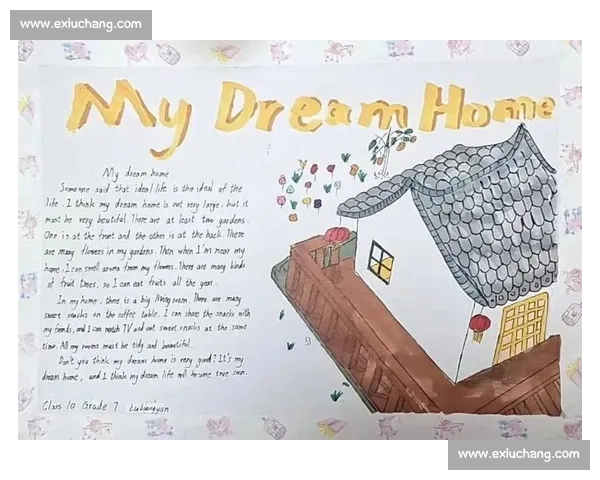 www.exiuchang.com
My Dream Home
My dream home
Someone said that ideal life is the ideal of the
life. I think my dream home is not very large, but it
must be very beutiful. There are at least two gardens.
One is at the front and the other is at the back. There
are many flowers in my gardens. Then when I'm near my
home, I can smell aroma from my flowers. There are many kinds
of fruit trees, so I can eat fruits all the year.
In my home, there is a big living room. There are many
sweet snacks on the coffee table. I can share the snacks with
my friends, and I can watch TV and eat sweet snacks at the same
time. All my rooms must be tidy and beautiful.
Don't you think my dream home is very good? It's my
dream home, and I think my dream life will become true soon.
Class 10 Grade 7
www.exiuchang.com